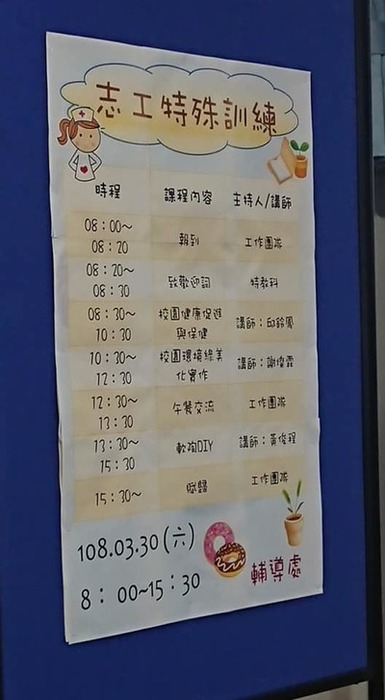 志工特殊訓練
時程 課程內容 主持人/講師
08：00~
08：20 報到 工作團隊
08：20~
08：30 致歡迎詞 特教科
08：30~
10：30 校園健康促進
與保健 講師：邱鈴鳳
10：30~
12：30 校園環境綠美
化實作 講師：謝
12：30~
13：30 午餐交流 工作團隊
13：30~
15：30 軟陶DIY 講師：黃俊程
15：30~ 賦歸 工作團隊
108.03.30(六)
8：00~15：30
輔導處